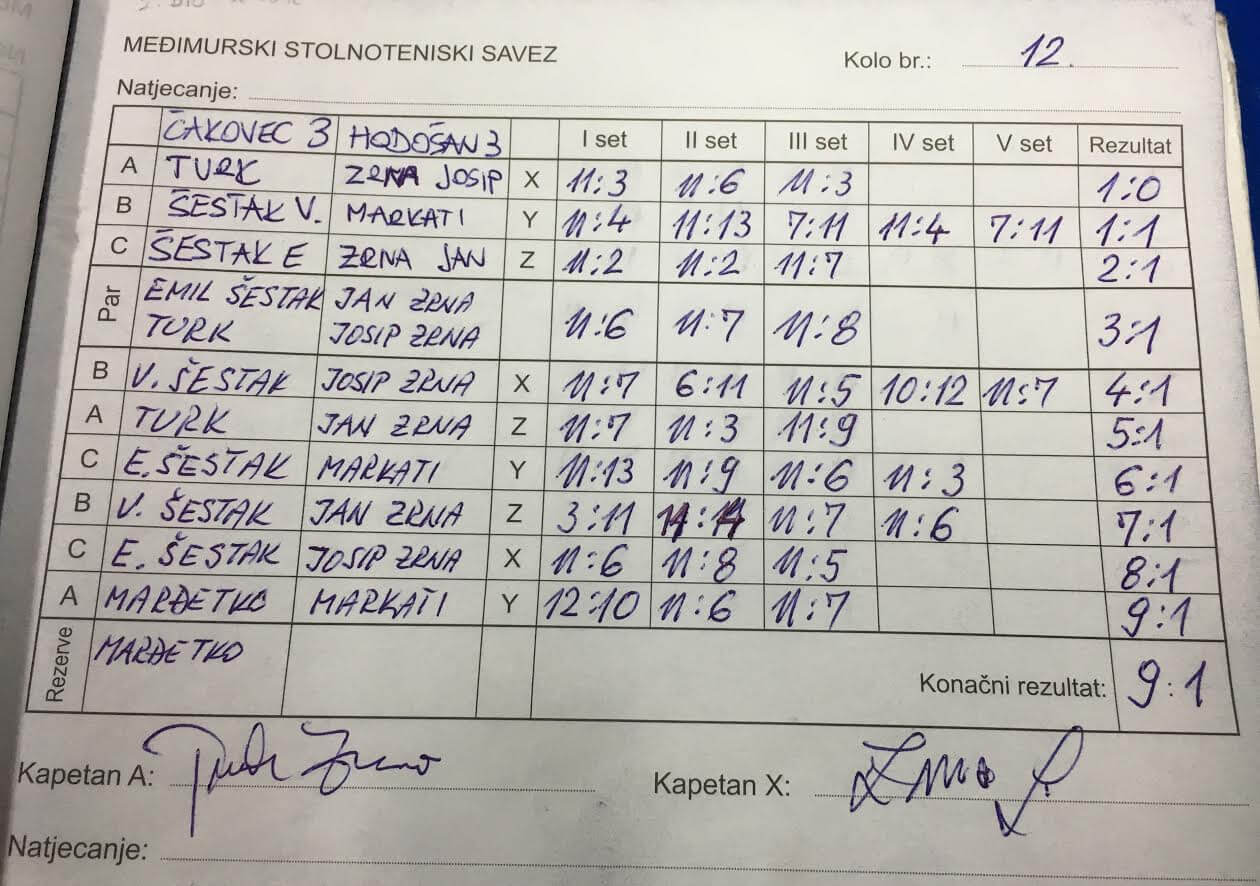 MEĐIMURSKI STOLNOTENISKI SAVEZ Kolo br.: 12.
Natjecanje:
ČAKOVEC 3 HODOŠAN 3 I set II set III set IV set V set Rezultat
A TURK ZRNA JOSIP X 11:3 11:6 11:3 1:0
B ŠESTAK V. MARKATI Y 11:4 11:13 7:11 11:4 7:11 1:1
C ŠESTAK E ZRNA JAN Z 11:2 11:2 11:7 2:1
Par EMIL ŠESTAK JAN ZRNA
TURK JOSIP ZRNA 11:6 11:7 11:8 3:1
B V. ŠESTAK JOSIP ZRNA X 11:7 6:11 11:5 10:12 11:7 4:1
A TURK JAN ZRNA Z 11:7 11:3 11:9 5:1
C E. ŠESTAK MARKATI Y 11:13 11:9 11:6 11:3 6:1
B V. ŠESTAK JAN ZRNA Z 3:11 11:7 11:6 7:1
C E. ŠESTAK JOSIP ZRNA X 11:6 11:8 11:5 8:1
A MARĐETKO MARKATI Y 12:10 11:6 11:7 9:1
Rezerve MARĐETKO Konačni rezultat: 9:1
Kapetan A: Kapetan X:
Natjecanje: